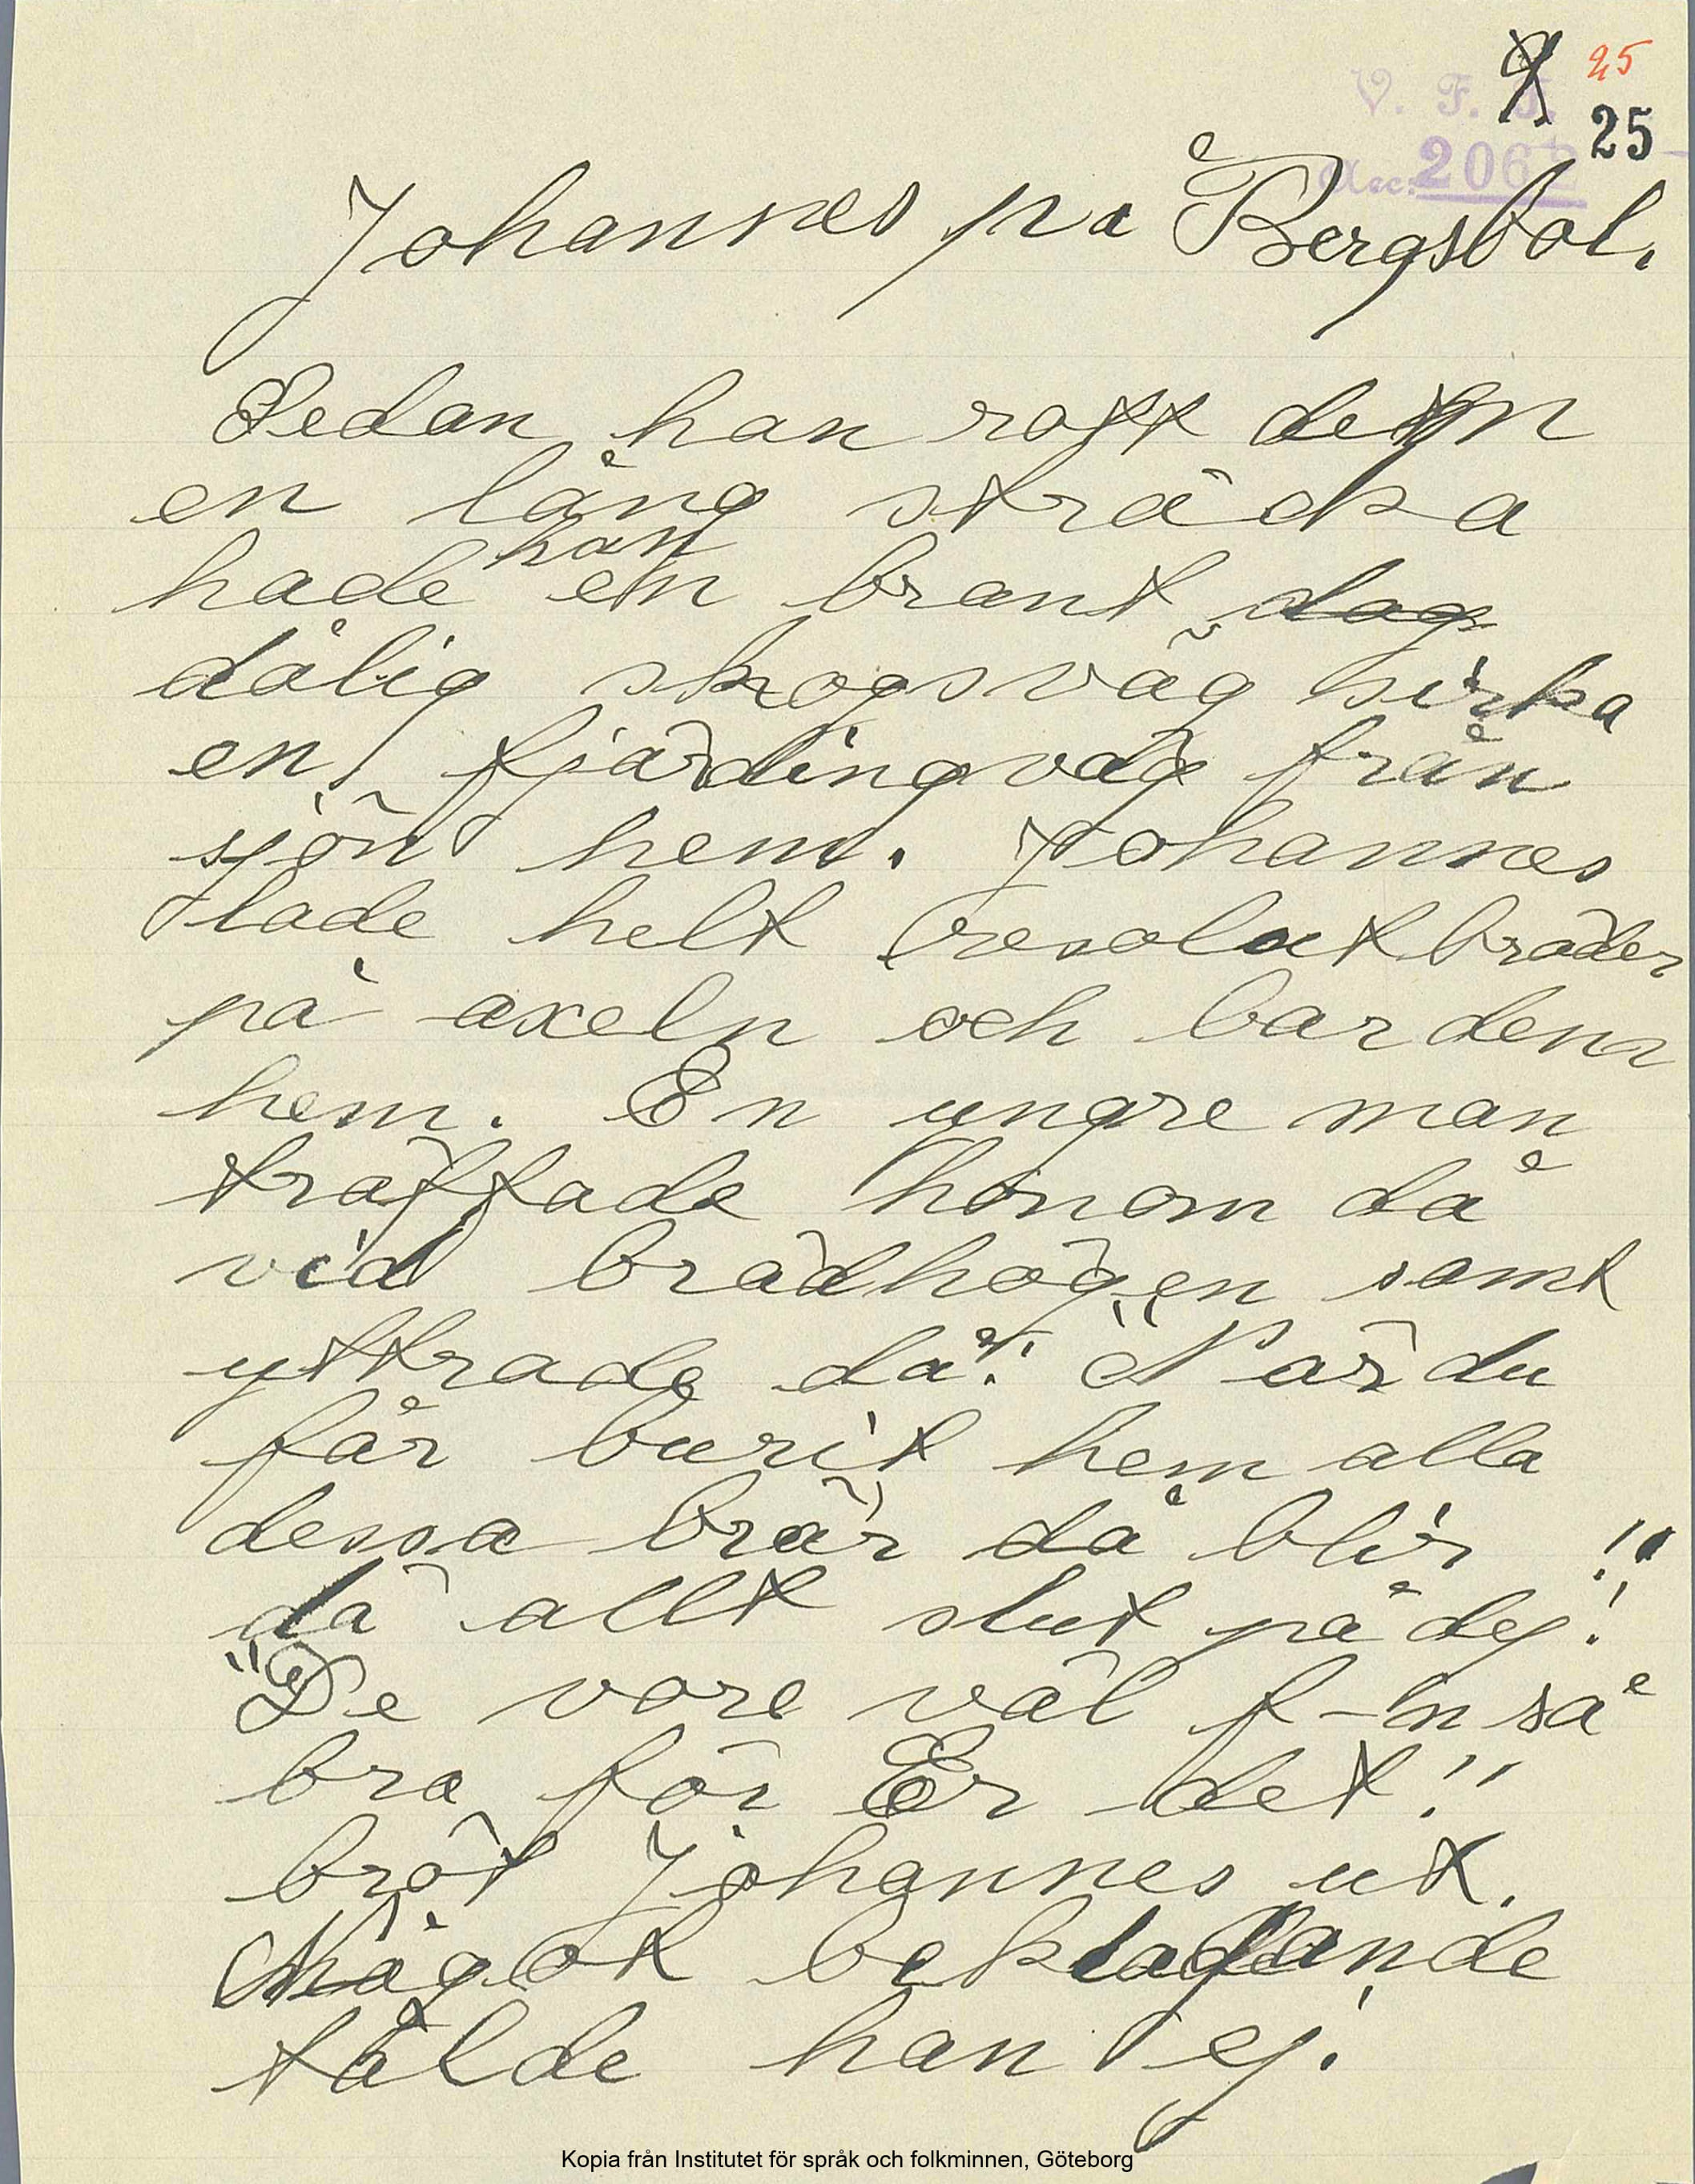 9 25
V. F. F.
25
Acc: 2062
Johannes på Bergsbol.
Sedan han rott den
en lång sträcka
hade han en brant dag
dålig skogsväg sirka
en fjärdingväg från
sjön hem. Johannes
lade helt resolut bräder
på axeln och bar dem
hem. En yngre man
träffade honom då
vid brädhögen samt
yttrade då: "När du
får burit hem alla
dessa brär då blir
då allt slut på dej!"
"De vore väl f-n så
bra för Er det!"
bröt Johannes ut.
Något beklagande
tålde han ej.
Kopia från Institutet för språk och folkminnen, Göteborg